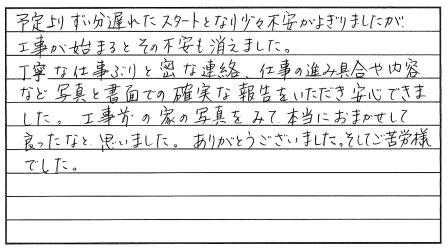 予定よりずい分遅れたスタートとなり少々不安がよぎりましたが
工事が始まるとその不安も消えました。
丁寧な仕事ぶりと密な連絡、仕事の進み具合や内容
など写真と書面での確実な報告をいただき安心できま
した。工事前の家の写真をみて本当におまかせして
良ったなと思いました。ありがとうございました。そしてご苦労様
でした。